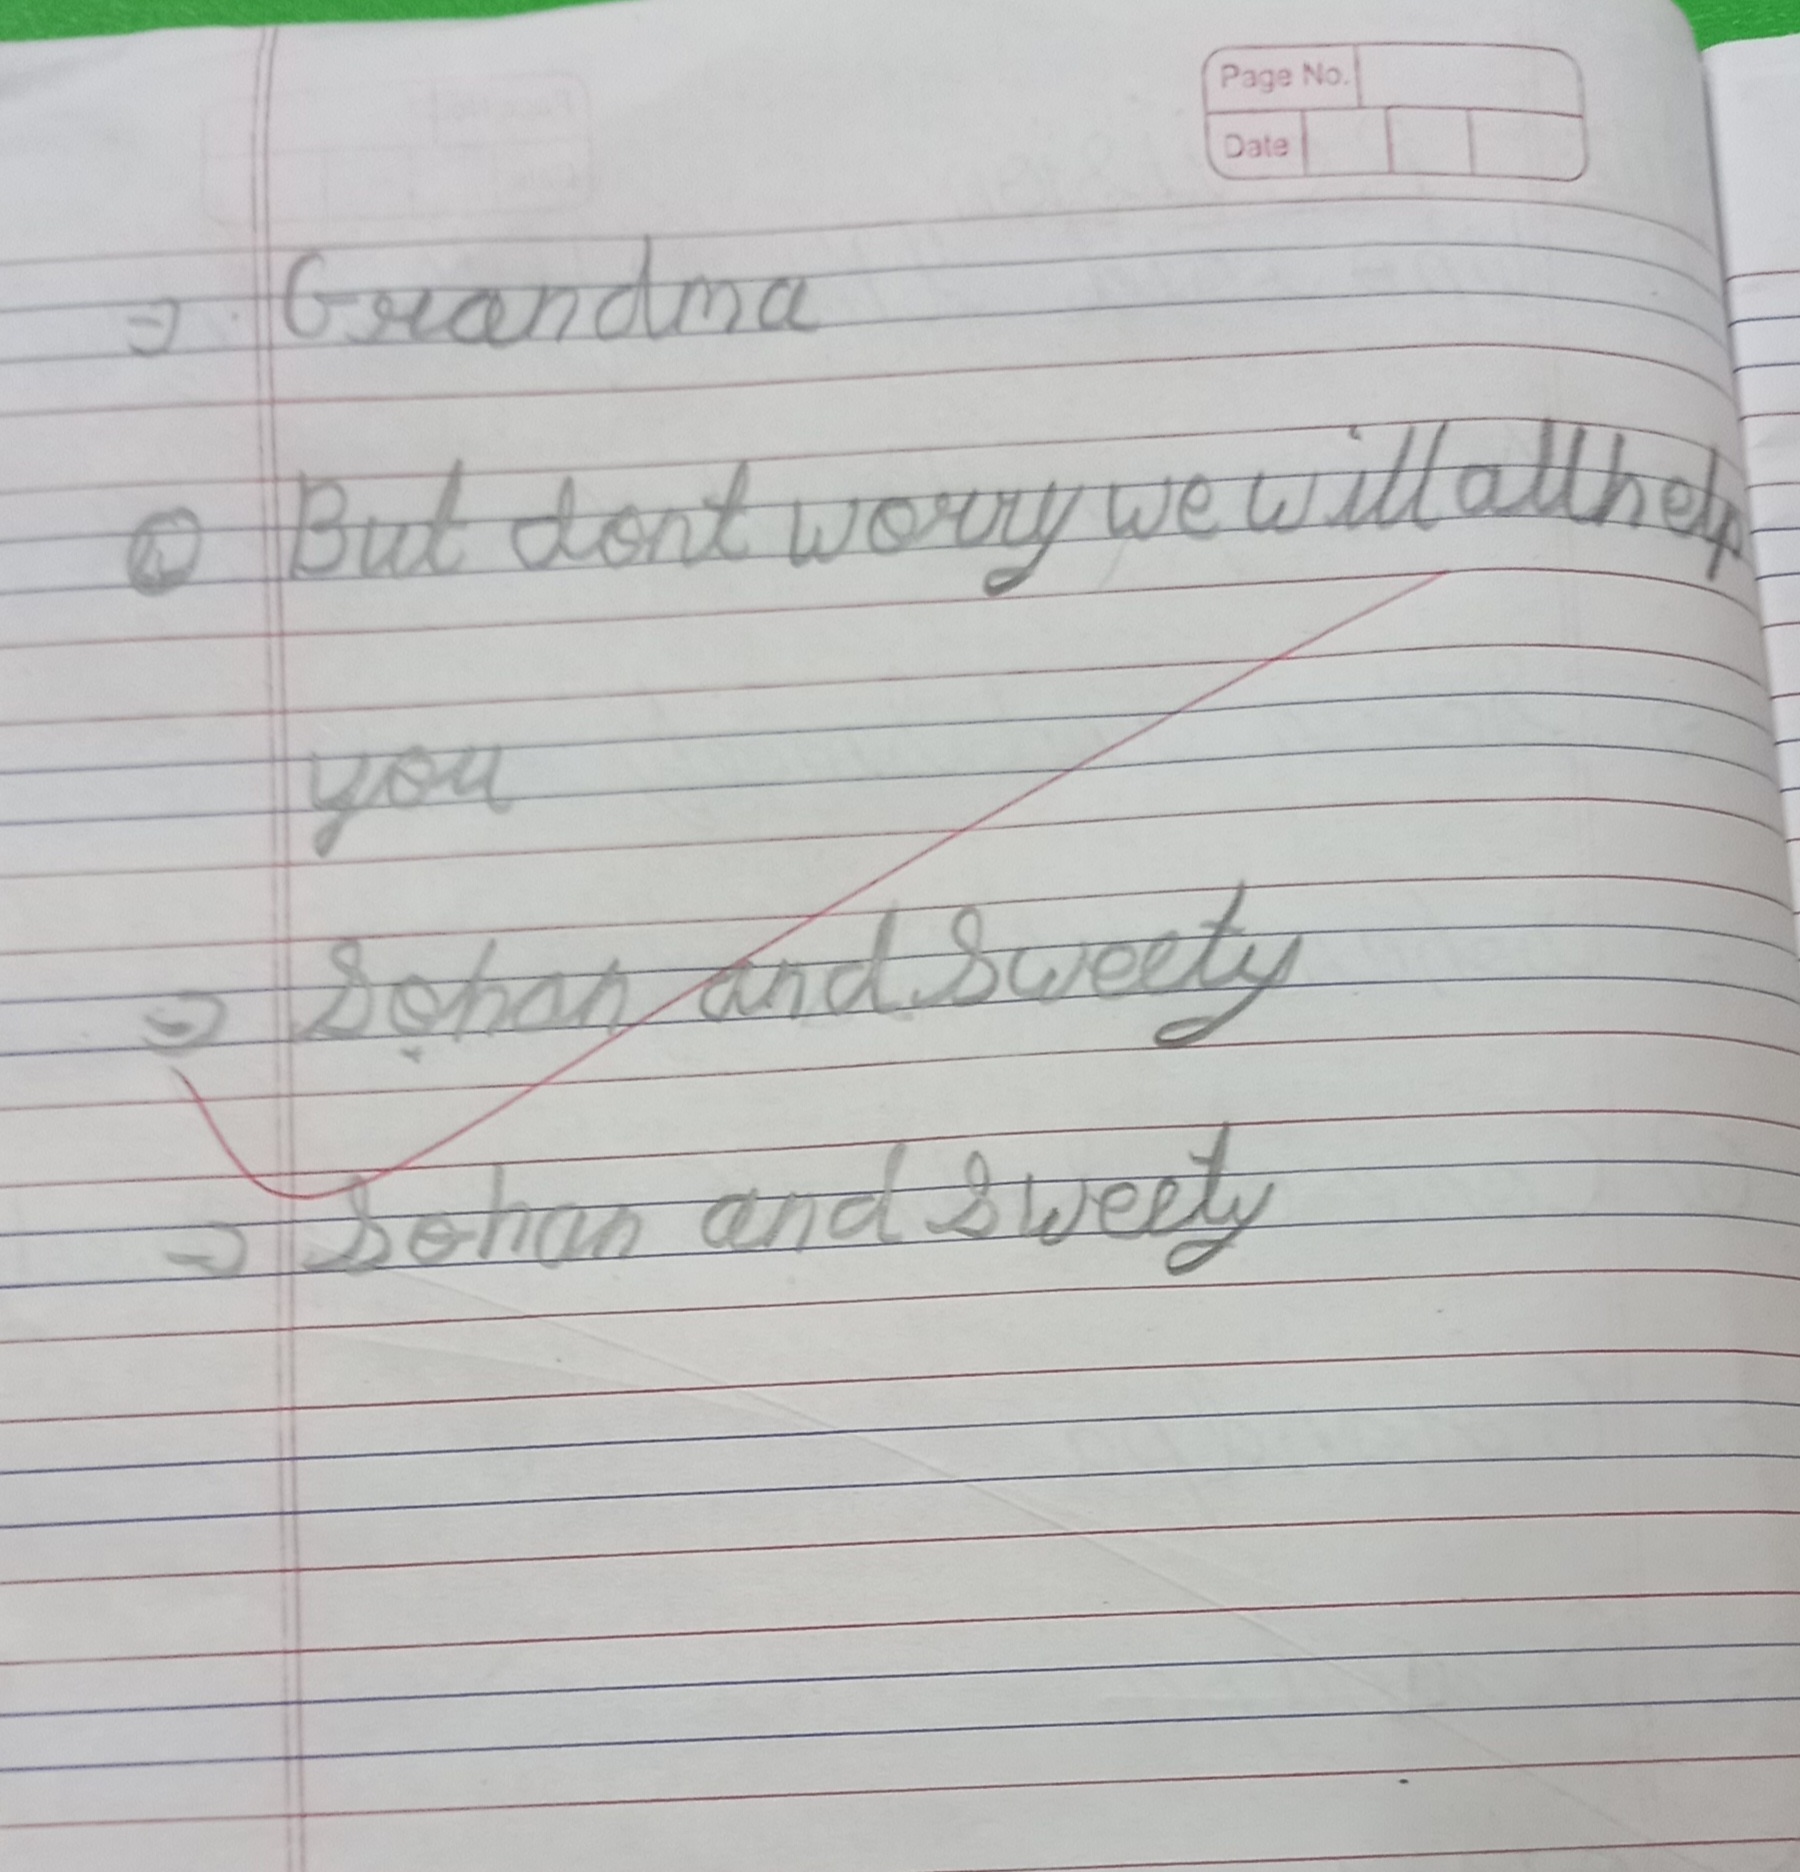 Page No.
Date
⇒ Grandma
But dont worry we will all help
you
⇒ Sohan and Sweety
⇒ Sohan and Sweety